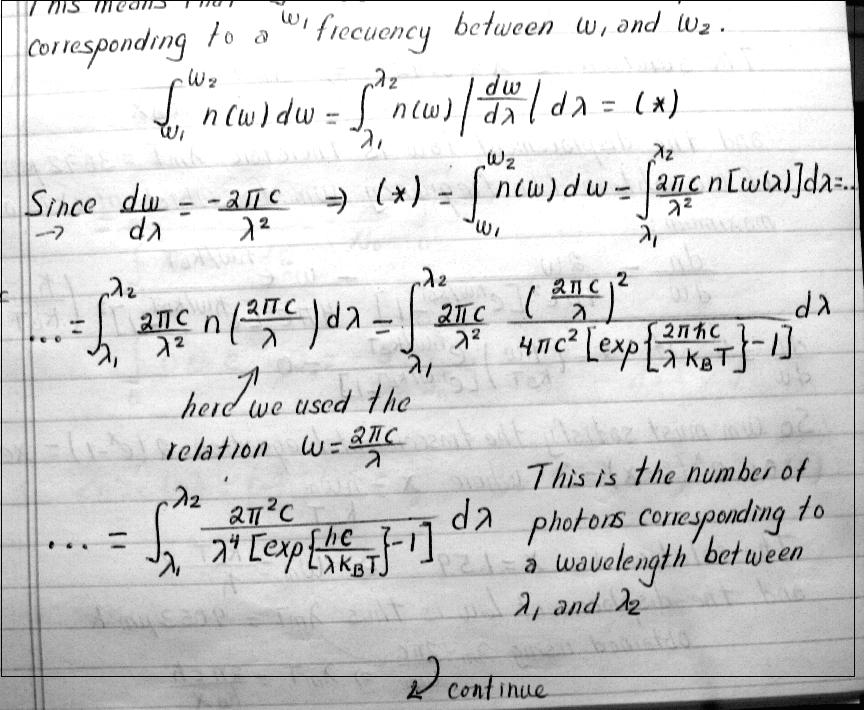 This means that
corresponding to a w₁ frecuency between w₁ and w₂.
∫_{w₁}^{w₂} n(w) dw = ∫_{λ₁}^{λ₂} n(w) |dw/dλ| dλ = (*)
Since dw/dλ = -2πc/λ² ⇒ (*) = ∫_{w₁}^{w₂} n(w) dw = ∫_{λ₁}^{λ₂} 2πc/λ² n[w(λ)]dλ=...
→
... = ∫_{λ₁}^{λ₂} 2πc/λ² n(2πc/λ) dλ = ∫_{λ₁}^{λ₂} 2πc/λ² (2πc/λ)² / 4πc² [exp{2πħc/λK_BT}-1] dλ
here we used the
relation w = 2πc/λ
... = ∫_{λ₁}^{λ₂} 2π²c / λ⁴ [exp{hc/λK_BT}-1] dλ
This is the number of
photons corresponding to
a wavelength between
λ₁ and λ₂
continue